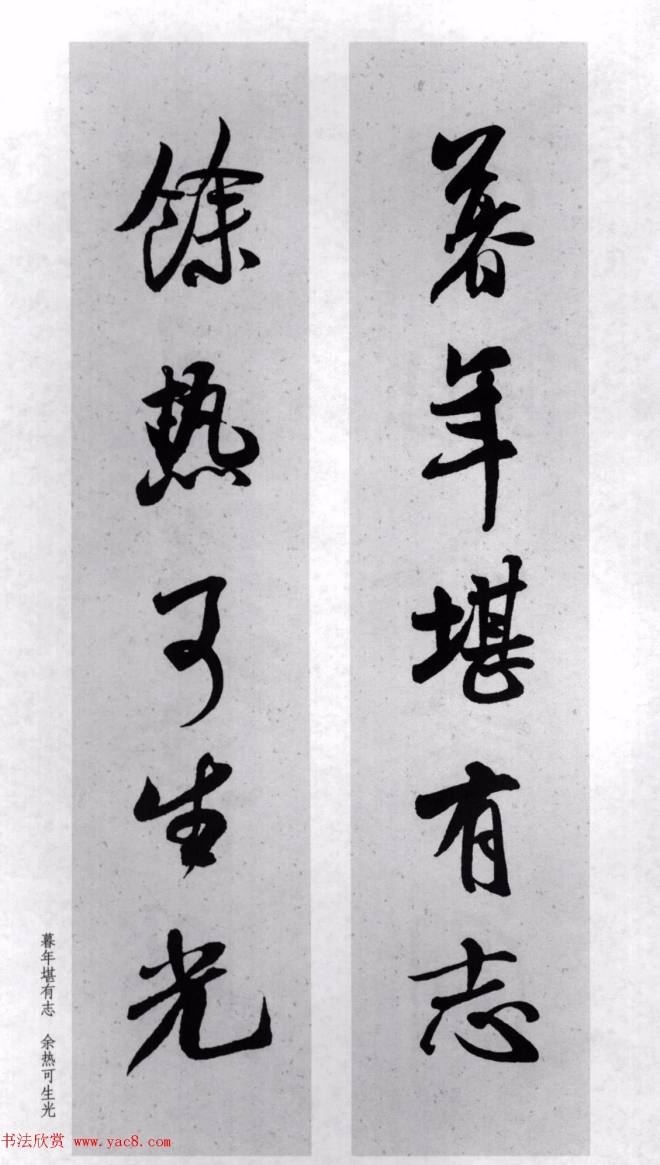 暮年堪有志
餘热可生光
暮年堪有志 余热可生光
书法欣赏 www.yac8.com